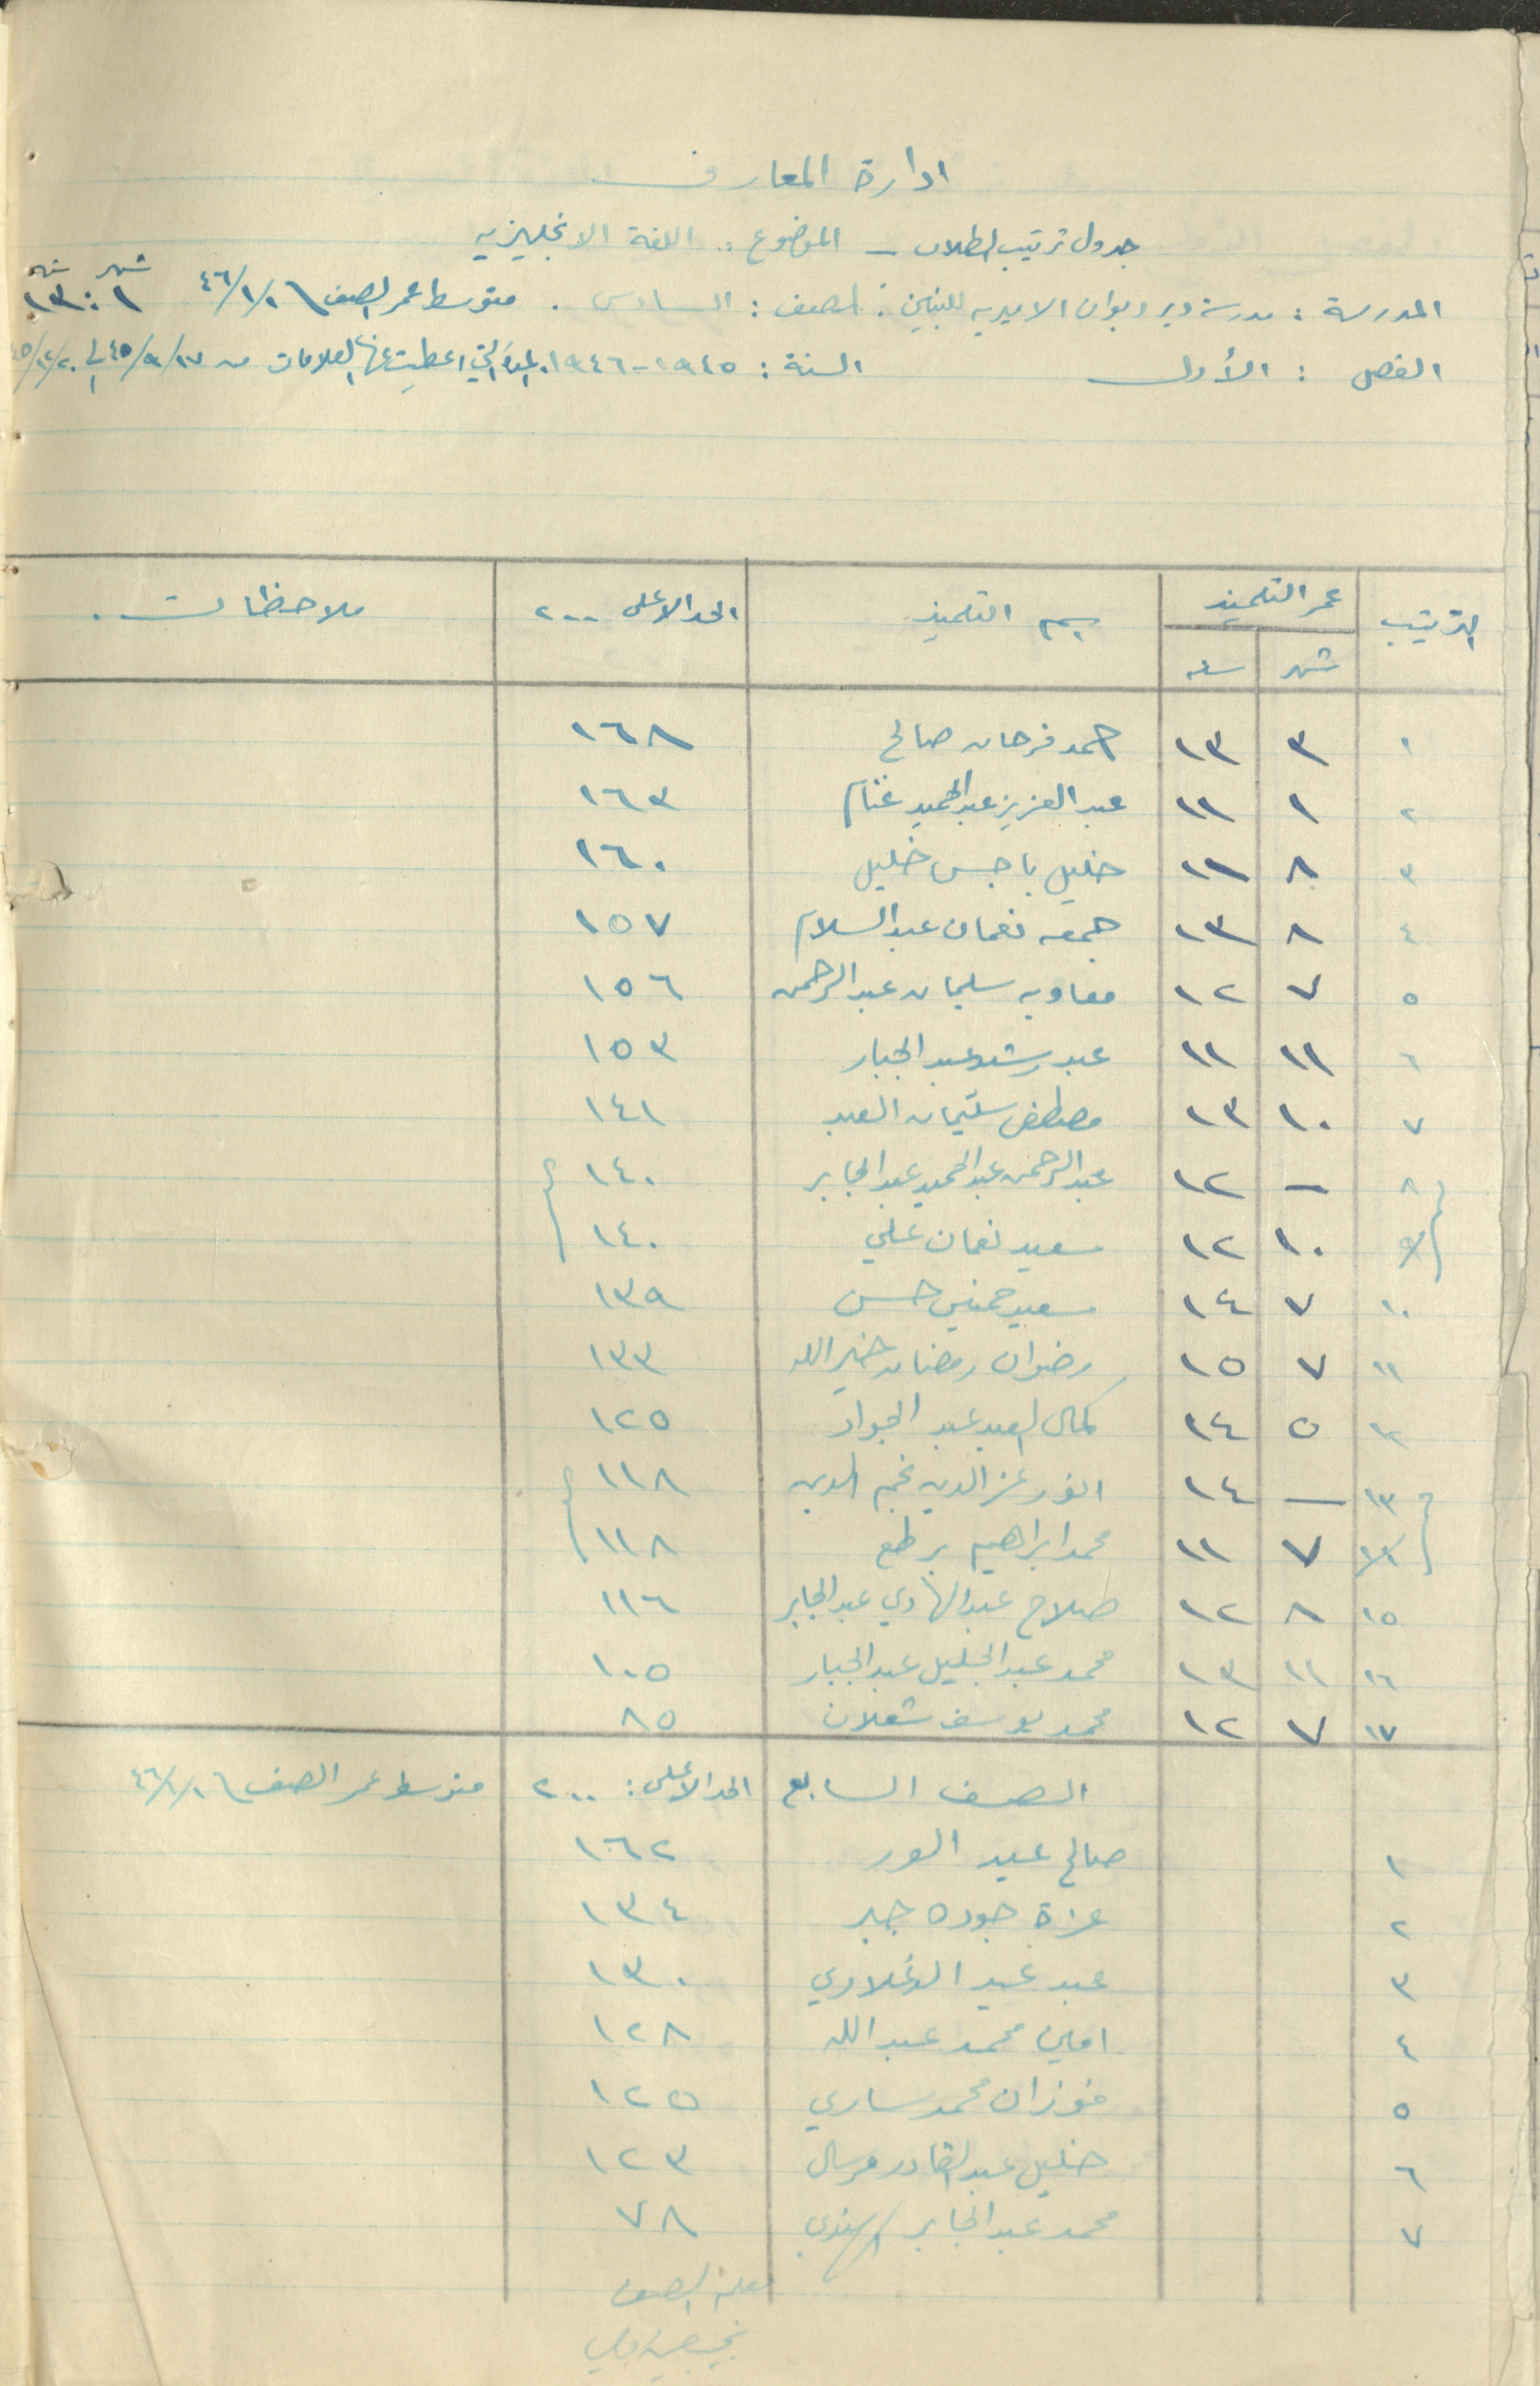 ادارة المعارف
جدول ترتيب الطلاب - الموضوع : اللغة الانجليزيه
المدرسة : مدرسة دير ديوان الاميريه للبنين . الصف : السادس . متوسط عمر الصف ١/١/٤٦ شهر ١ : سنه ١٣
الفصل : الأول السنة : ١٩٤٥-١٩٤٦ . المدة التي اعطيت عنها العلامات من ١٧/٩/٤٥ الى ٢٠/١٢/٤٥
الترتيب عمر التلميذ اسم التلميذ الحد الاعلى ٢٠٠ ملاحظات .
شهر سنه
١ ٣ ١٣ احمد فرحان صالح ١٦٨
٢ ١ ١١ عبد العزيز عبد الحميد غنام ١٦٣
٣ ٨ ١١ خليل باجس خليل ١٦٠
٤ ٨ ١٣ جمعه نعمان عبد السلام ١٥٧
٥ ٧ ١٢ معاويه سليمان عبد الرحمن ١٥٦
٦ ١١ ١١ عبد رشد عبد الجبار ١٥٣
٧ ١٠ ١٣ مصطفى سليمان العبد ١٤١
٨ - ١٢ عبد الرحمن عبد الحميد عبد الجابر ١٤٠
٩ ١٠ ١٢ سعيد نعمان علي ١٤٠
١٠ ٧ ١٤ سعيد حسني حسن ١٣٩
١١ ٧ ١٥ رضوان رمضان خير الله ١٣٣
١٢ ٥ ١٤ كمال العبد عبد الجواد ١٢٥
١٣ - ١٤ انور عز الدين نجم الدين ١١٨
٧ ١١ محمد ابراهيم برطع ١١٨
١٥ ٨ ١٢ صلاح عبد الهادي عبد الجابر ١١٦
١٦ ١١ ١٣ محمد عبد الجليل عبد الجبار ١٠٥
١٧ ٧ ١٢ محمد يوسف شعلان ٨٥
الصف السابع الحد الاعلى : ٢٠٠ متوسط عمر الصف ١/١/٤٦
١ صالح عبد ١٦٢
٢ عزة جوده جبر ١٣٤
٣ عبد عبد ١٣٠
٤ امين محمد عبد الله ١٢٨
٥ فوزان محمد ساري ١٢٥
٦ خليل عبد القادر مرسال ١٢٣
٧ محمد عبد الجابر الهندي ٧٨
معلم الصف